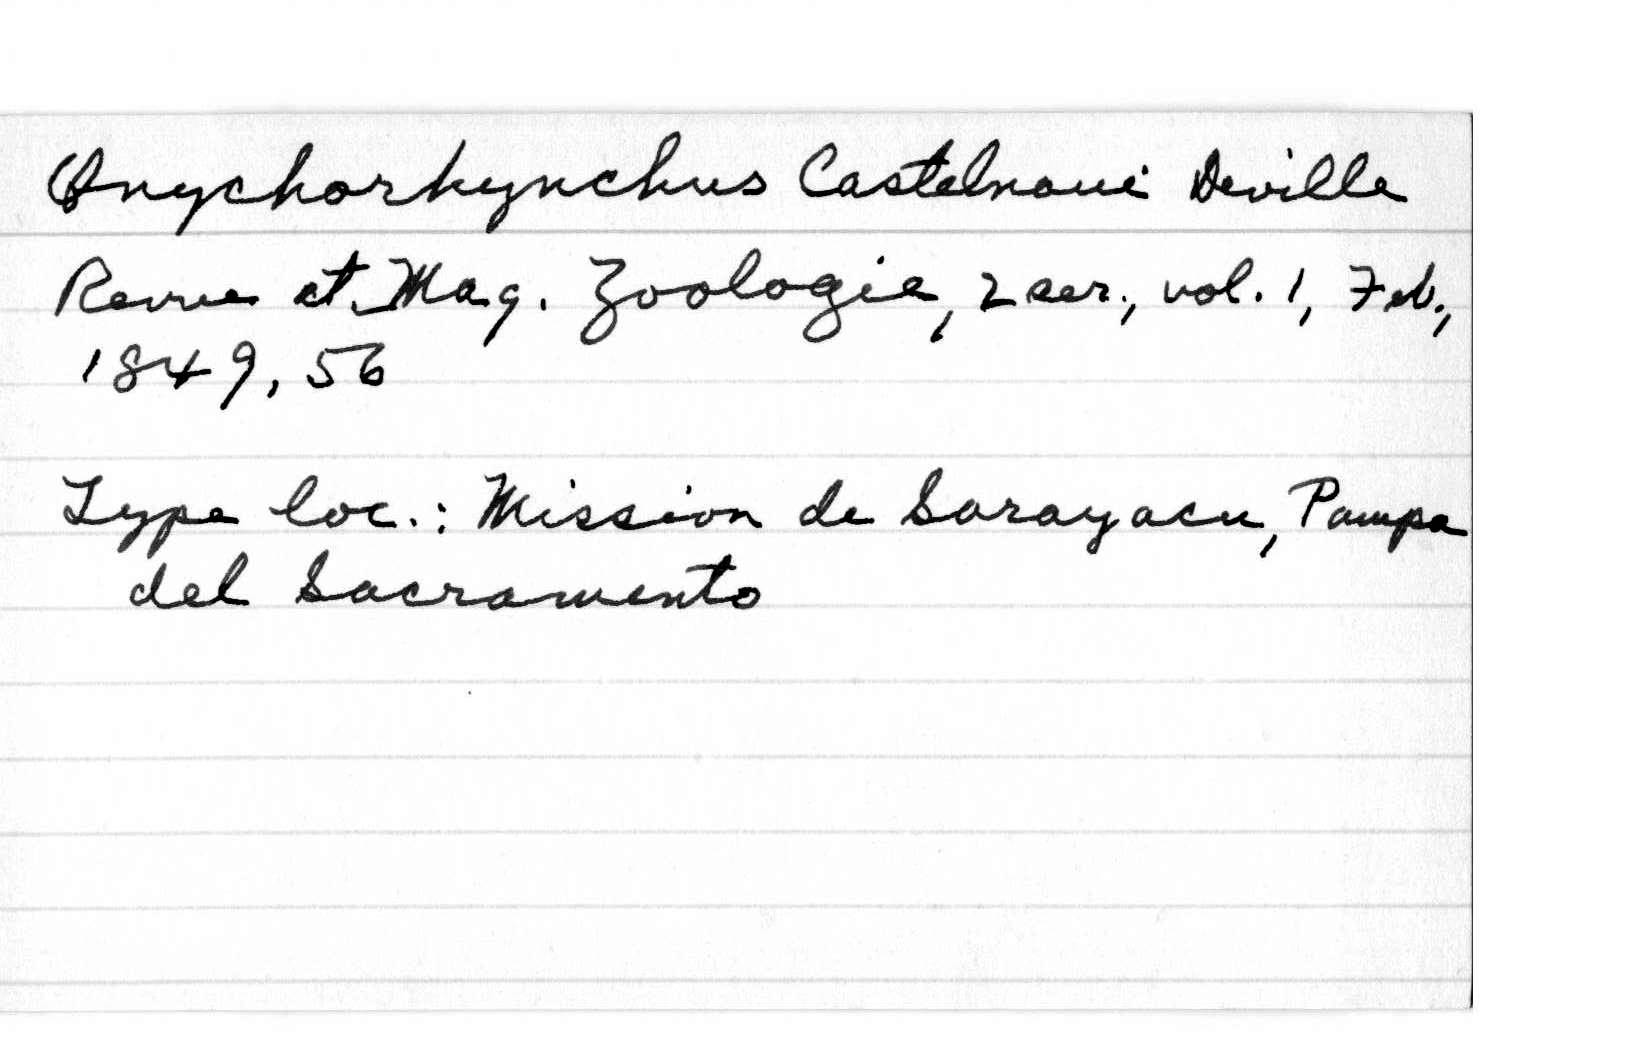 Onychorhynchus Castelnaui Deville
Revue et Mag. Zoologie, 2 ser., vol. 1, Feb.,
1849, 56
Type loc.: Mission de Sarayacu, Pampa
del Sacramento